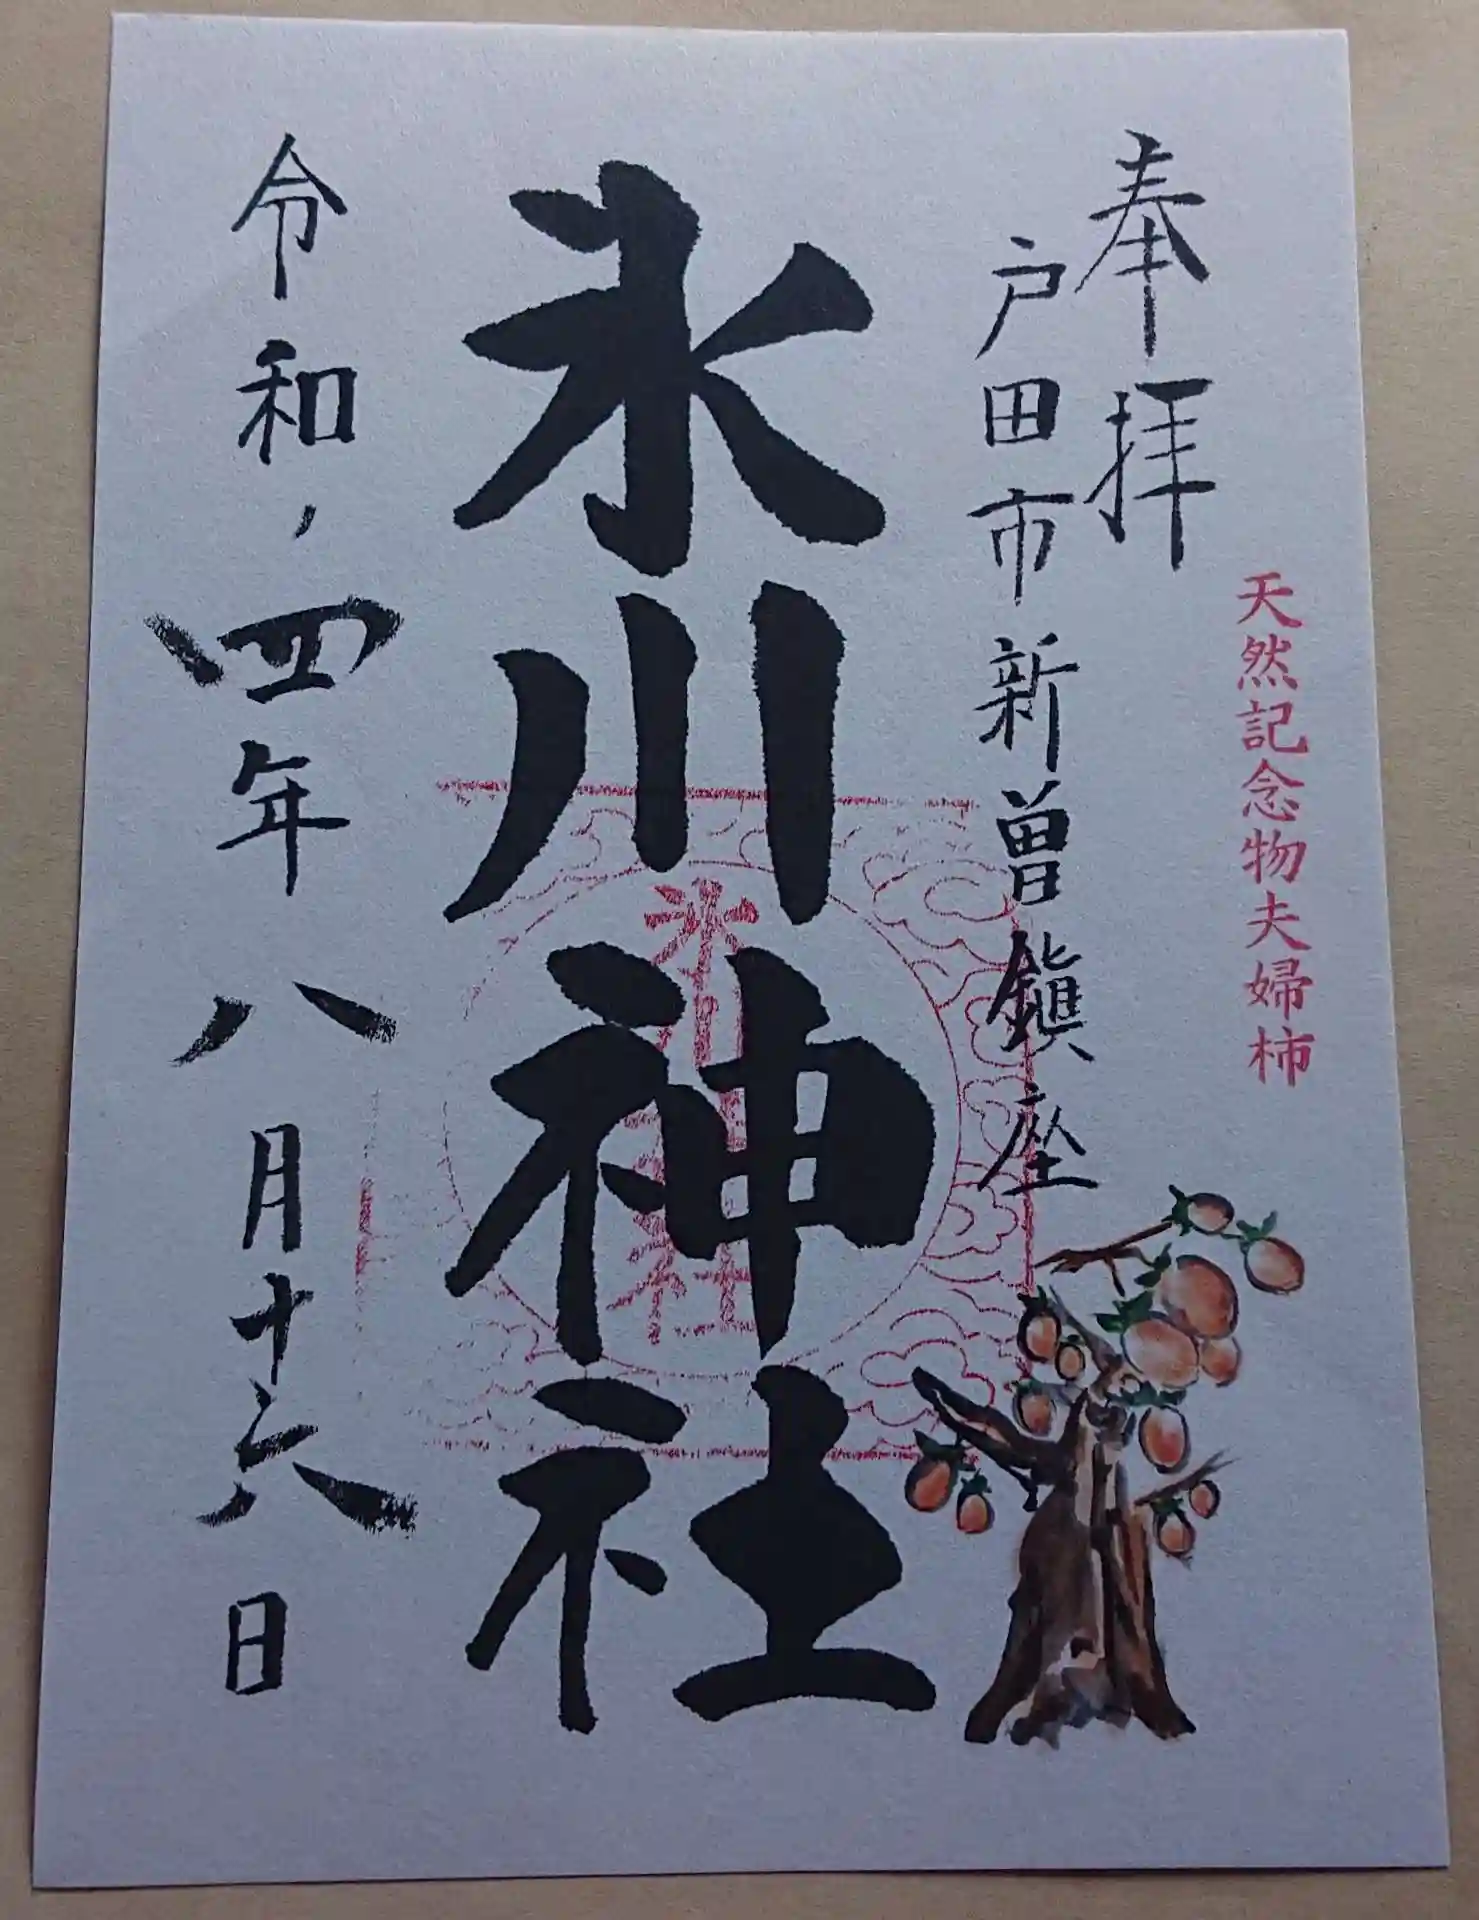 天然記念物夫婦柿
奉拝
戸田市新曽鎮座
氷川神社
氷川神社
令和四年八月十六日